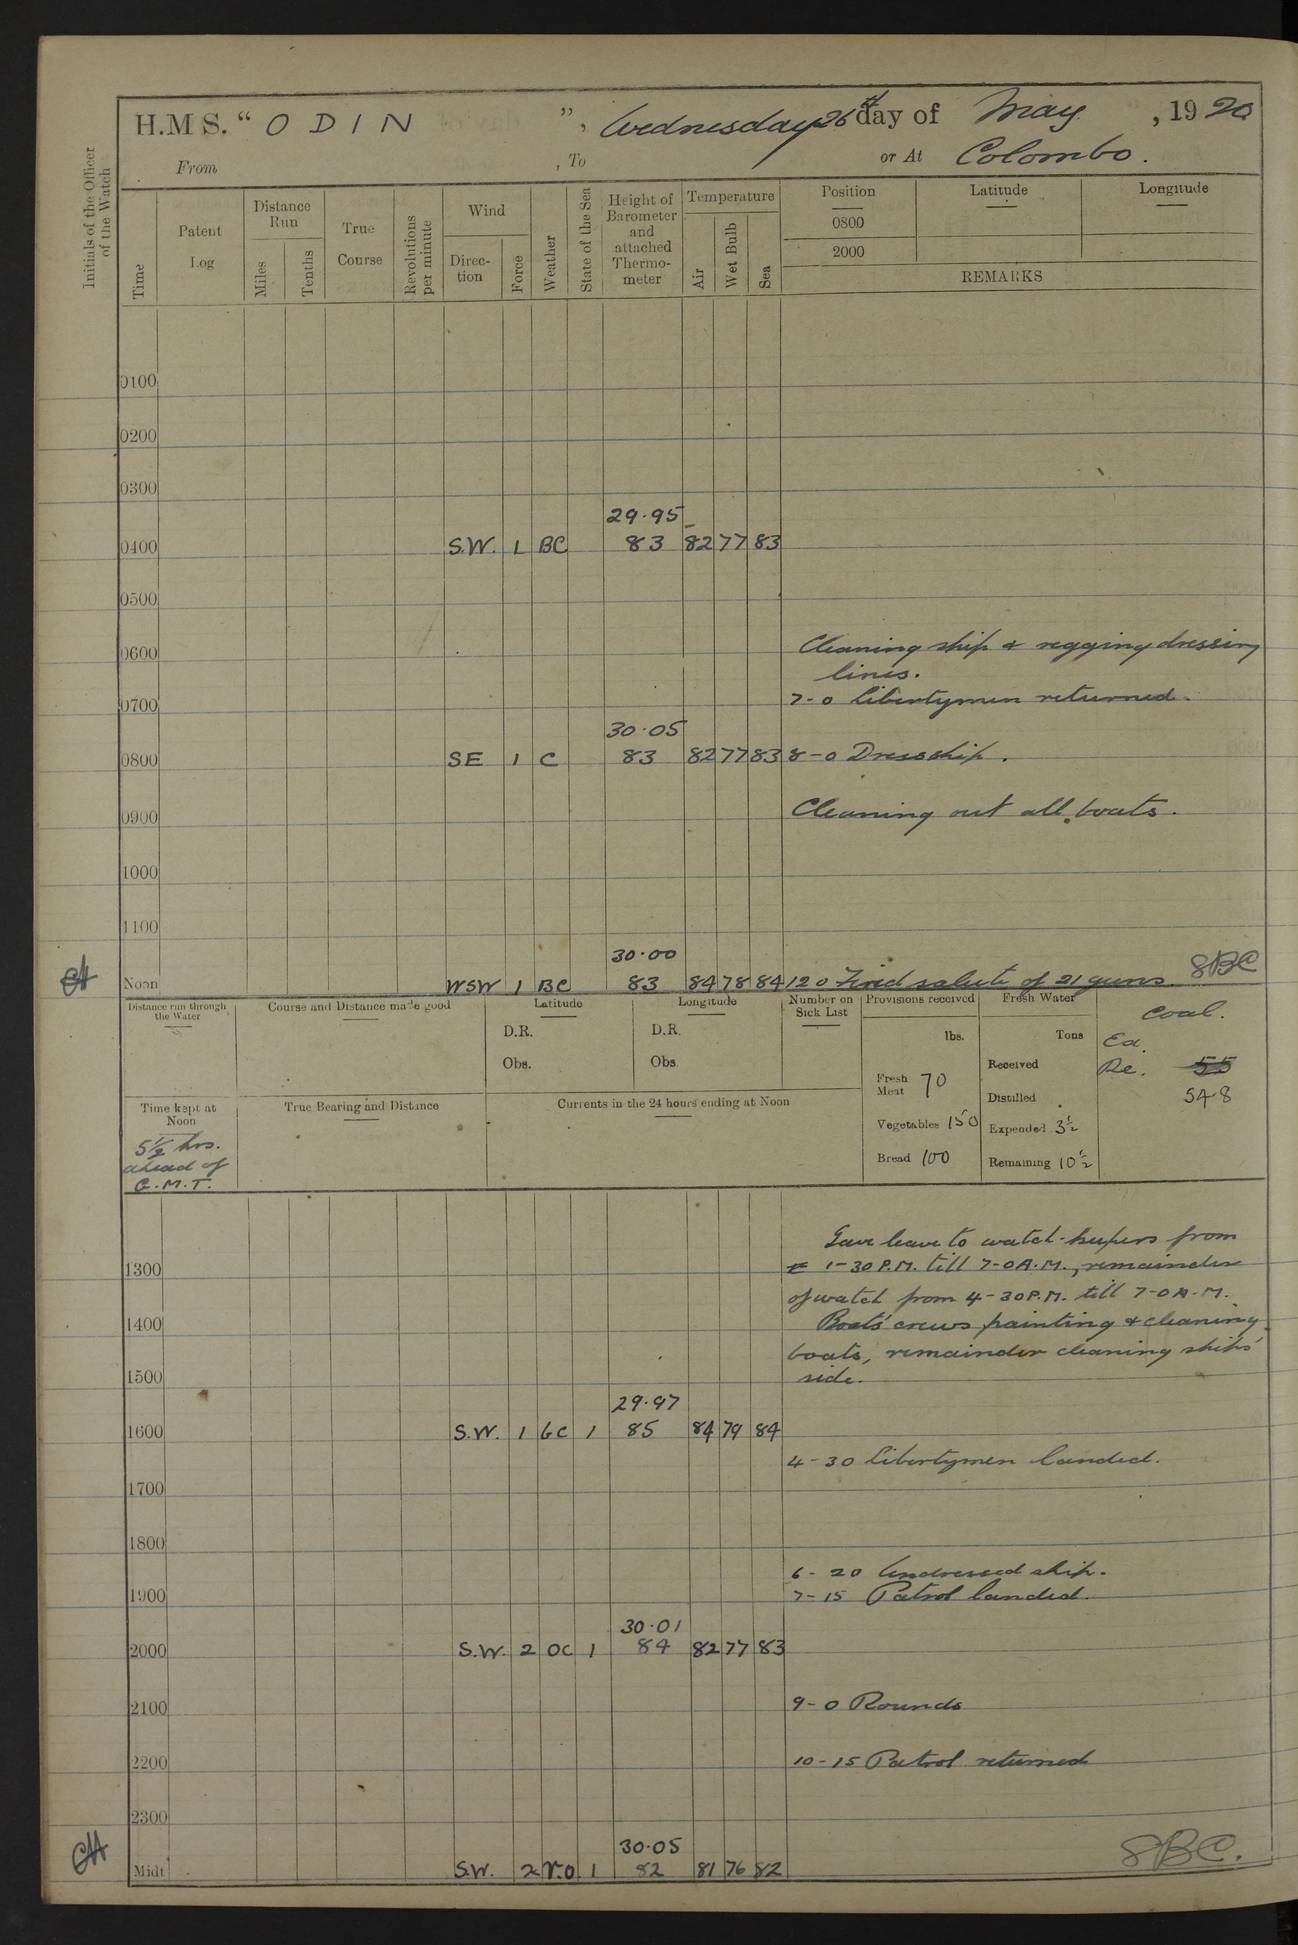 H.M S. “ ODIN ”, Wednesday 26th day of May , 19 20
From , To or At Colombo.
Initials of the Officer of the Watch
Time
Patent Log
Distance Run
Miles
Tenths
True Course
Revolutions per minute
Wind
Direc-tion
Force
Weather
State of the Sea
Height of Barometer and attached Thermo-meter
Temperature
Air
Wet Bulb
Sea
Position Latitude Longitude
0800
2000
REMARKS
0100
0200
0300
29.95
0400 S.W. 1 BC 83 82 77 83
0500
Cleaning ship & rigging dressing
0600
lines.
7-0 Libertymen returned.
0700
30.05
0800 SE 1 C 83 82 77 83 8-0 Dress ship.
Cleaning out all boats.
0900
1000
1100
30.00
Noon WSW 1 BC 83 84 78 84 12 0 Fired salute of 21 guns. 8BC
Distance run through the Water
Course and Distance made good
Latitude
D.R.
Obs.
Longitude
D.R.
Obs.
Number on Sick List
Provisions received
lbs.
Fresh Meat 70
Vegetables 150
Bread 100
Fresh Water
Tons
Received
Distilled
Expended 3½
Remaining 10½
Coal.
Ex.
Re. 55
548
Time kept at Noon
5½ hrs.
ahead of
G.M.T.
True Bearing and Distance
Currents in the 24 hours ending at Noon
Gave leave to watch-keepers from
1300 1-30 P.M. till 7-0 A.M., remainder
of watch from 4-30 P.M. till 7-0 A.M.
1400 Boats' crews painting & cleaning
boats, remainder cleaning ships'
1500 side.
29.97
1600 S.W. 1 bc 1 85 84 79 84
4-30 Libertymen landed.
1700
1800
6-20 Undressed ship.
1900 7-15 Patrol landed.
30.01
2000 S.W. 2 OC 1 84 82 77 83
2100 9-0 Rounds
2200 10-15 Patrol returned
2300
30.05
Midt S.W. 2 r.o. 1 82 81 76 82 8BC.